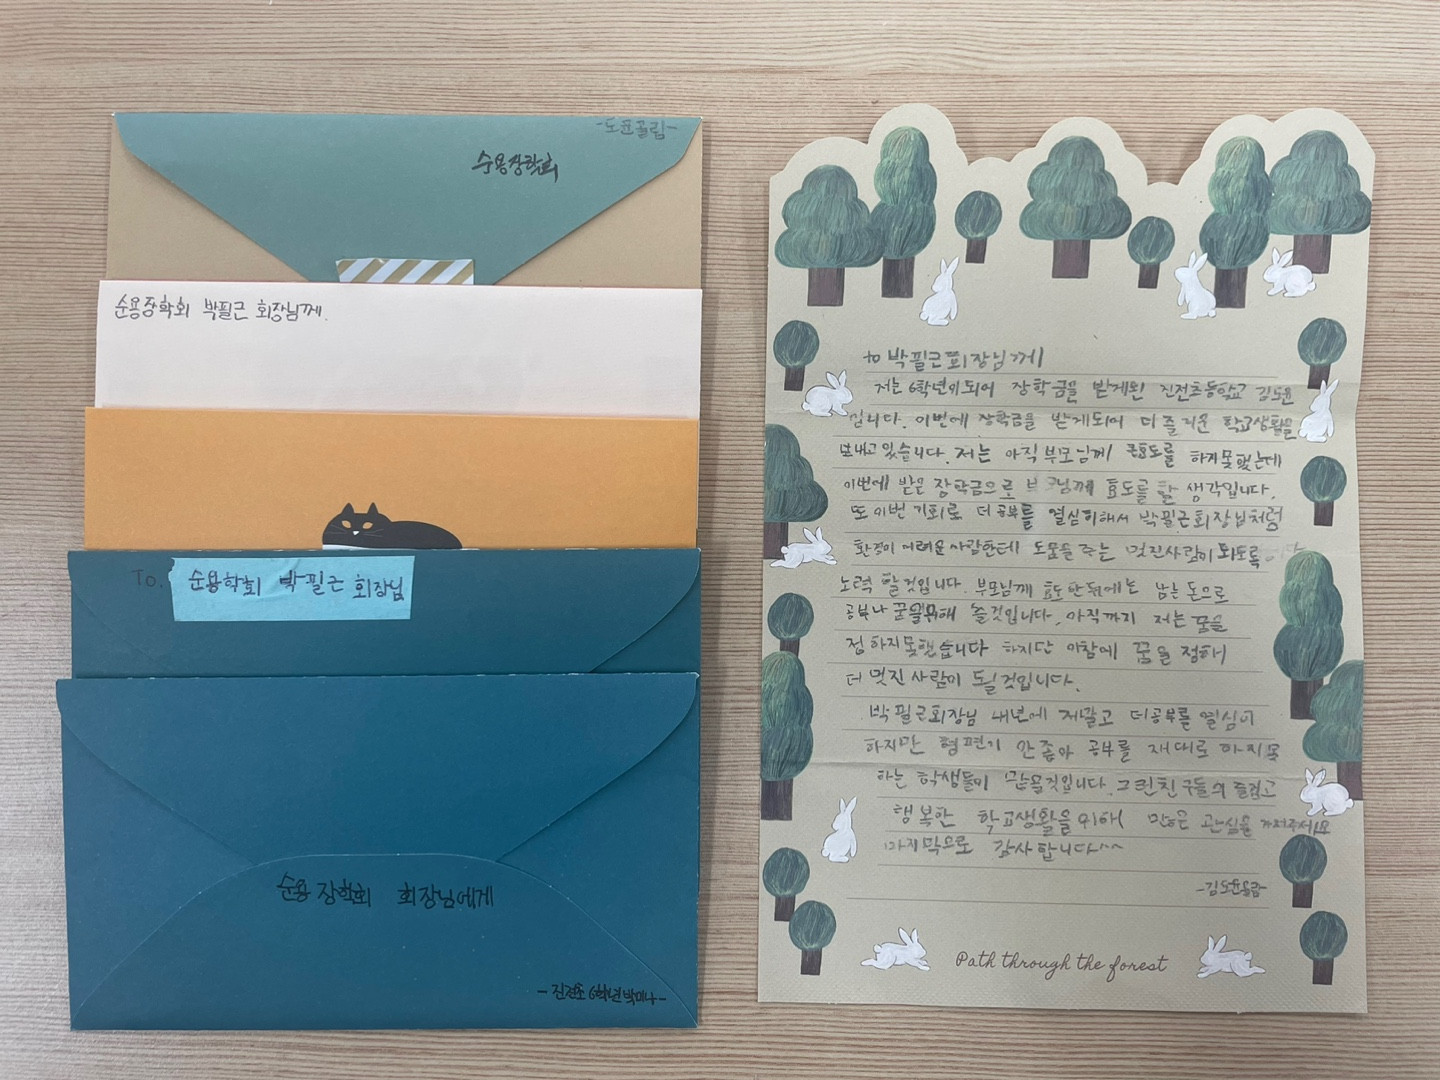 -도윤올림-
순용장학회
순용장학회 박필근 회장님께.
To. 순용학회 박필근 회장님
순용 장학회 회장님에게
-진전초 6학년 박미나-
to 박필근회장님께
저는 6학년이되어 장학금을 받게된 진전초등학교 김도윤
입니다. 이번에 장학금을 받게되어 더 즐거운 학교생활을
보내고 있습니다. 저는 아직 부모님께 큰효도를 하지못했는데
이번에 받은 장학금으로 님께 효도를 할 생각입니다.
또 이번 기회로 더 공부를 열심히해서 박필근회장님처럼
환경이 어려운 사람한테 도움을 주는 멋진사람이 되도록
노력 할것입니다. 부모님께 효도한뒤에는 남는 돈으로
공부나 꿈을위해 쓸것입니다. 아직까지 저는 꿈을
정하지못했습니다 하지만 이참에 꿈을 정해
더 멋진 사람이 될것입니다.
박필근회장님 내년에 저말고 더공부를 열심히
하지만 형편기 안좋아 공부를 재대로 하지못
하는 학생들이 있을것입니다. 그런친구들의 즐겁고
행복한 학교생활을위해 많은 관심을 가져주세요
마지막으로 감사합니다^^
-김도윤올림-
Path through the forest